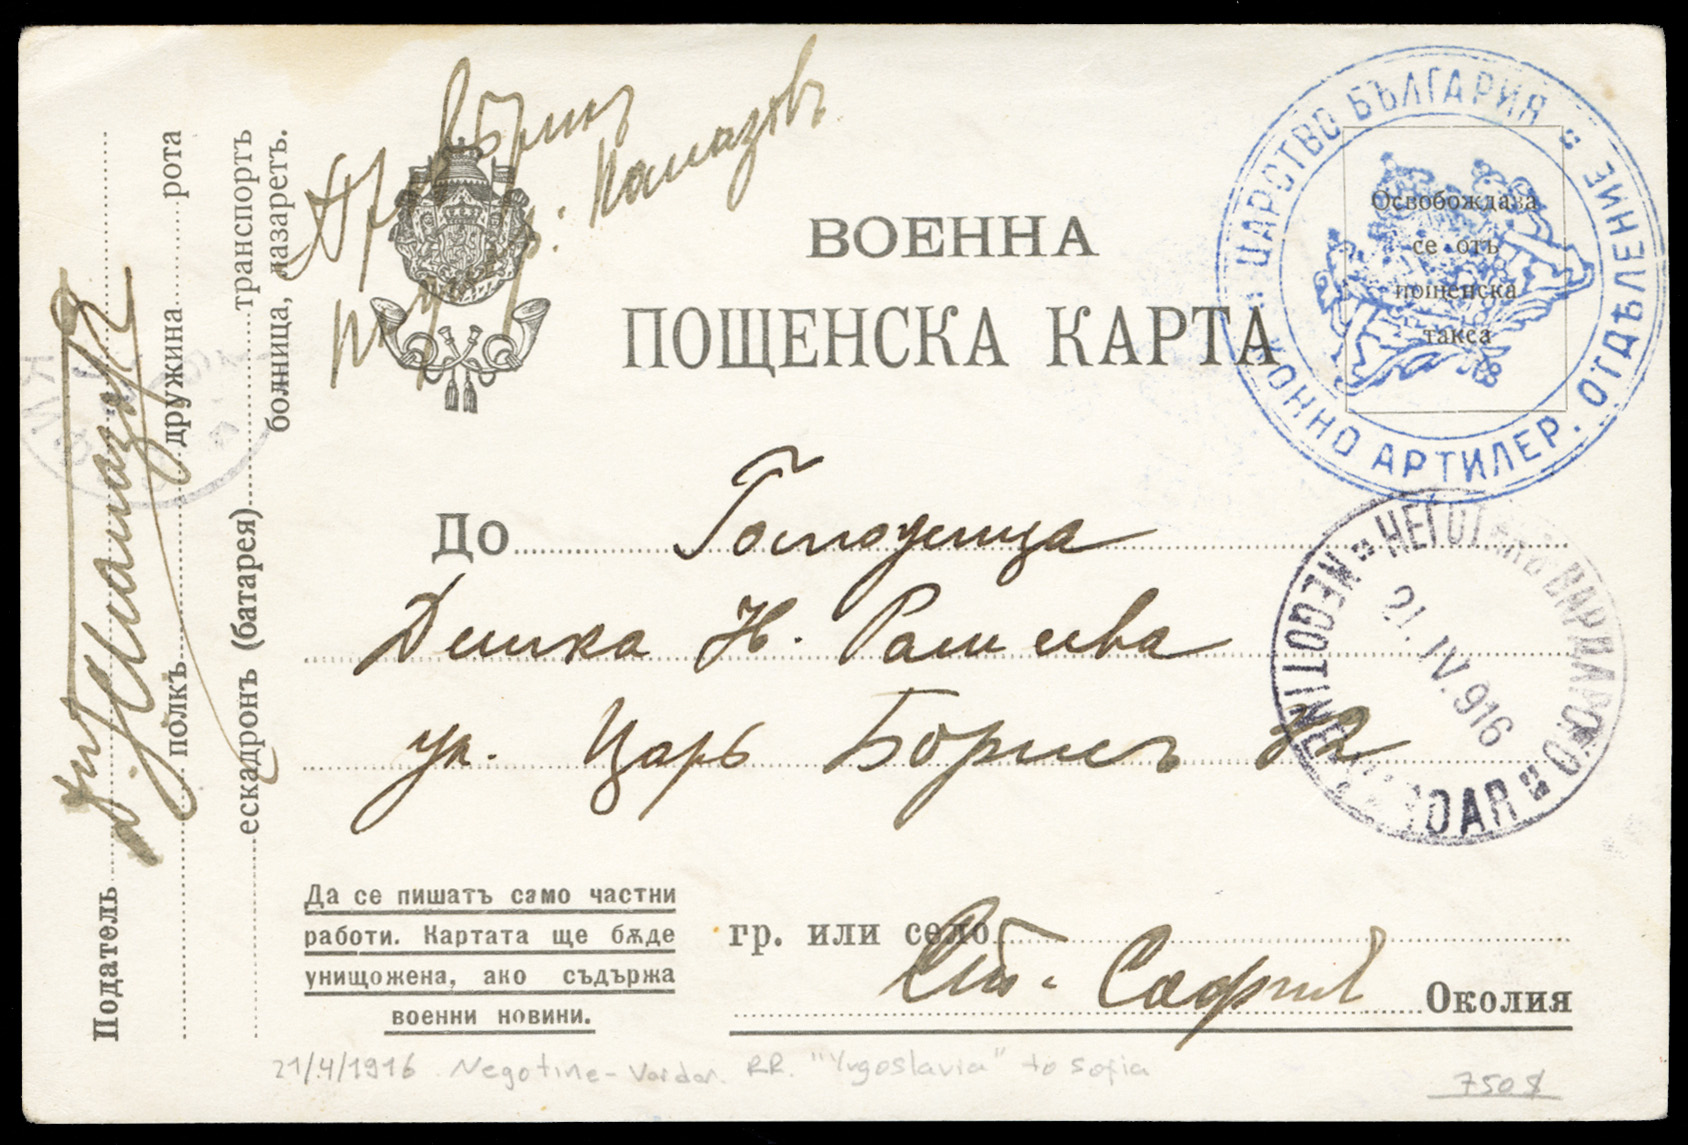 ЦАРСТВО БЪЛГАРИЯ
КОННО АРТИЛЕР. ОТДѢЛЕНИЕ
Освобождава
се отъ
пощенска
такса
ВОЕННА
ПОЩЕНСКА КАРТА
До Госпожица
Н. Рашева
ул. Царь Борисъ
гр. или село
София
Околия
NEGOTINE VARDAR
21.IV.916
Да се пишатъ само частни
работи. Картата ще бѫде
унищожена, ако съдържа
военни новини.
Податель
полкъ дружина рота
ескадронъ (батарея) транспортъ
болница, лазаретъ.
21/4/1916 Negotine-Vardar. RR. "Yugoslavia" to Sofia